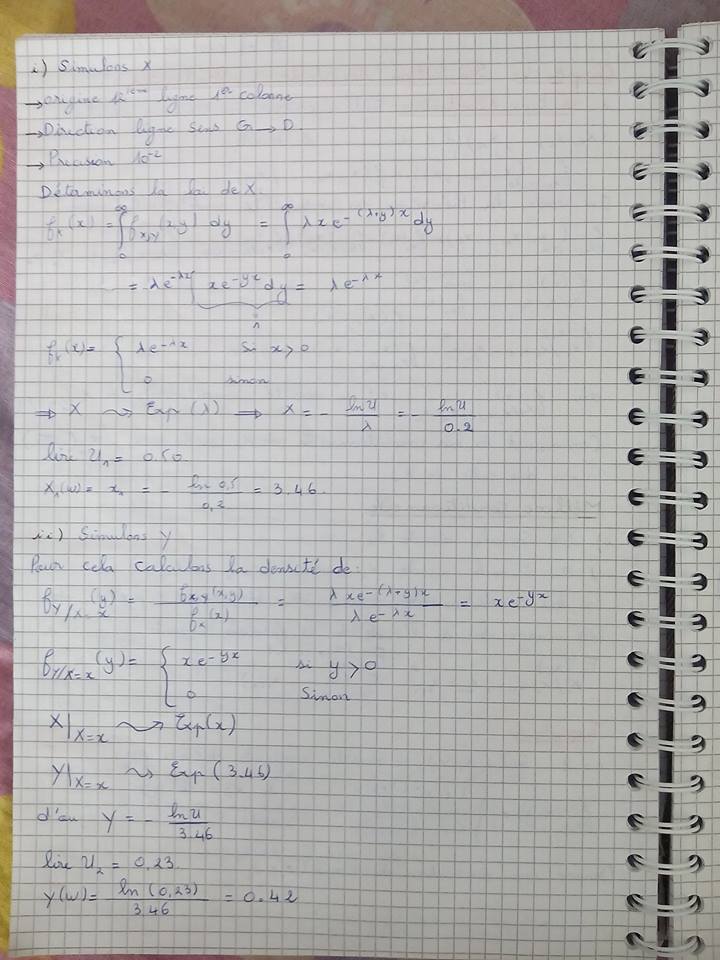 i) Simulons X
→ origine 12ième ligne 1er colonne
→ Direction ligne sens G → D
→ Précision 10^-2
Déterminons la loi de X.
f_X(x) = ∫_0^∞ f_X,Y(x,y) dy = ∫_0^∞ λ x e^-(λ+y)x dy
= λ e^-λx ∫ x e^-yx dy = λ e^-λx
1
f_X(x) = { λ e^-λx si x > 0
0 sinon
⇒ X ⤳ Exp(λ) ⇒ X = - ln U / λ = - ln U / 0.2
lire U_1 = 0.50
X_1(w) = x_1 = - ln 0,5 / 0,2 = 3.46
ii) Simulons Y
Pour cela calculons la densité de
f_Y/X=x(y) = f_X,Y(x,y) / f_X(x) = λ x e^-(λ+y)x / λ e^-λx = x e^-yx
f_Y/X=x(y) = { x e^-yx si y > 0
0 Sinon
X|X=x ⤳ Exp(x)
Y|X=x ⤳ Exp(3.46)
d'où Y = - ln U / 3.46
lire U_2 = 0,23
Y(w) = ln(0,23) / 3.46 = 0.42